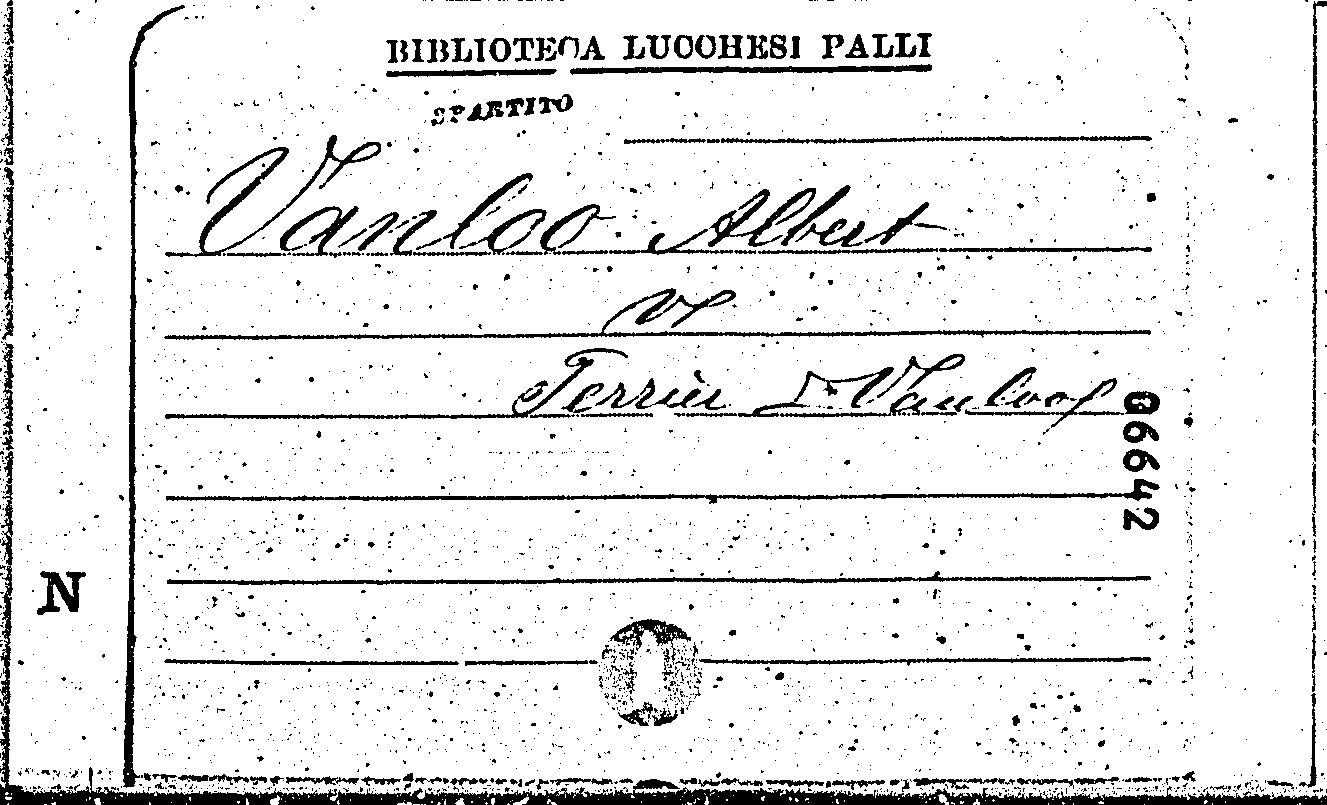 BIBLIOTECA LUCCHESI PALLI
SPARTITO
Vanloo Albert
V.
Terrier & Vanloo
06642
N